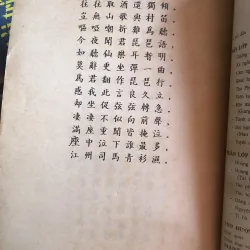 往往取酒還獨傾,
豈無山歌與村笛,
嘔啞嘲哳難爲聽,
今夜聞君琵琶語,
如聽仙樂耳暫明,
莫辭更坐彈一曲,
爲君翻作琵琶行,
感我此言良久立,
却坐促弦弦轉急,
凄凄不似向前聲,
滿座重聞皆掩泣,
座中泣下誰最多,
江州司馬青衫濕,